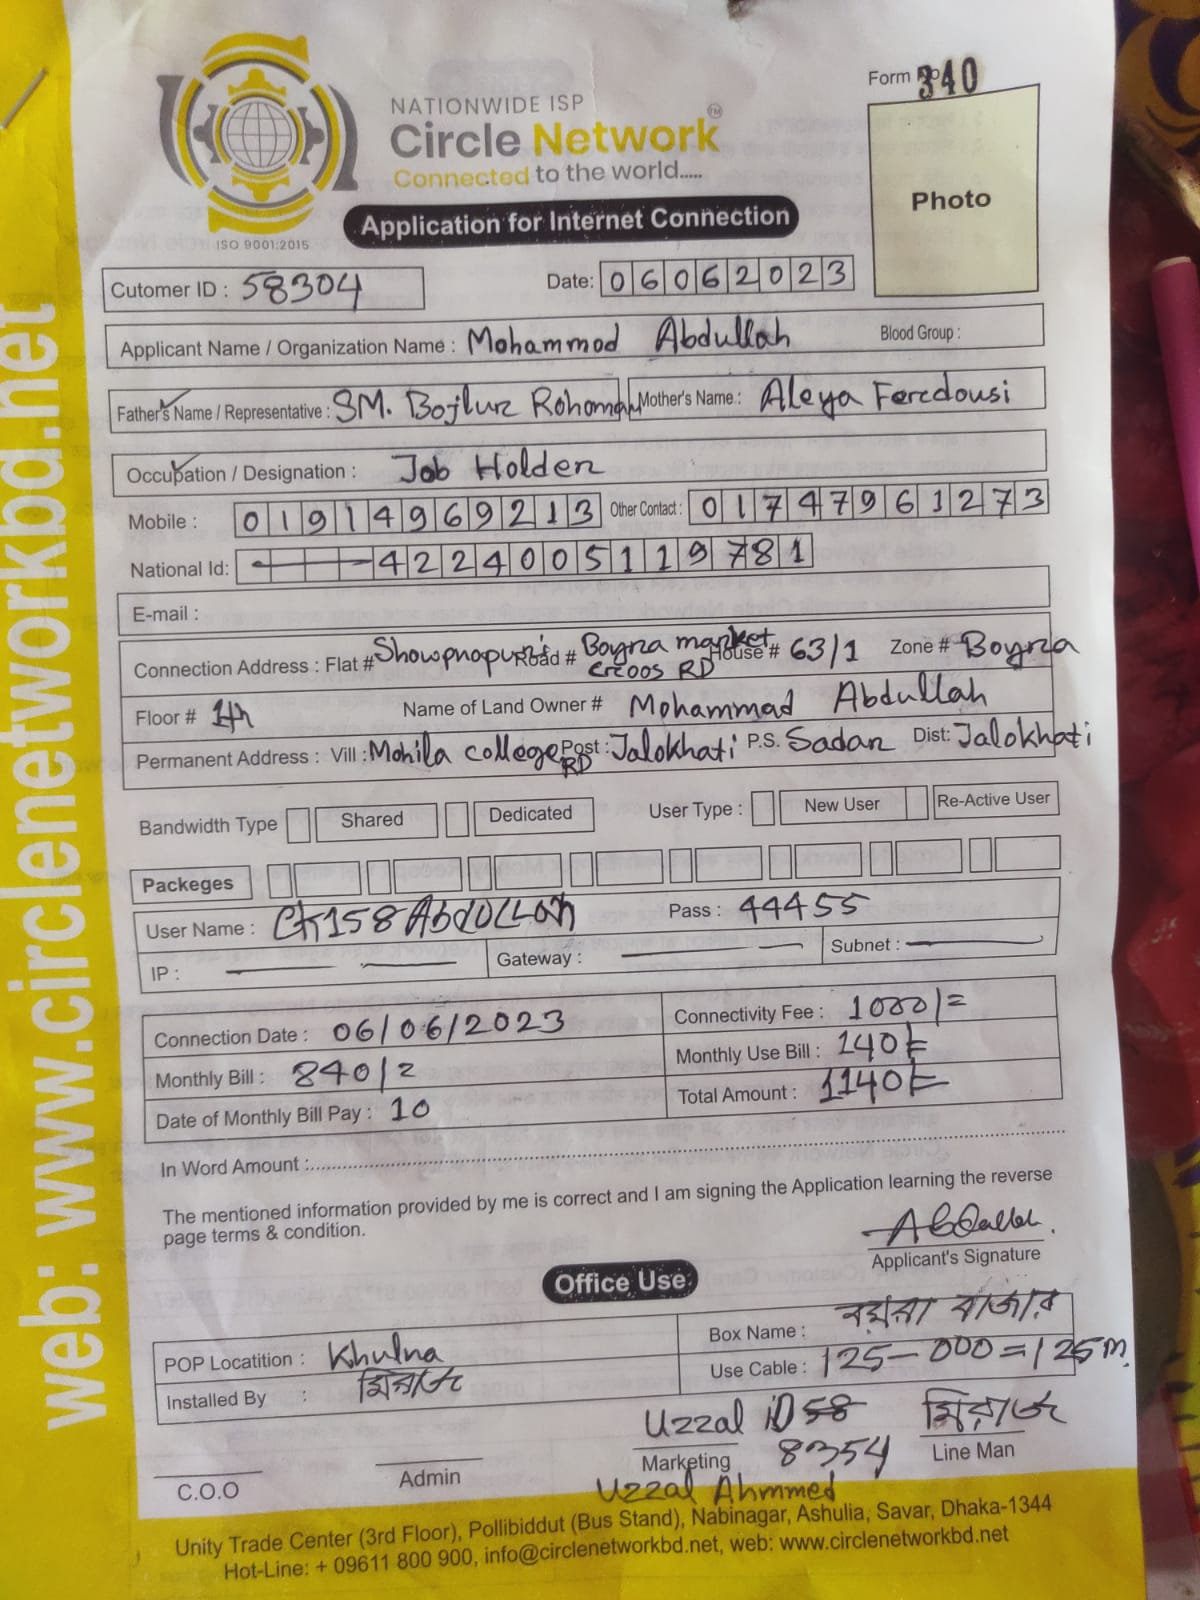 Form No 340
NATIONWIDE ISP
Circle Network™
Connected to the world.....
ISO 9001:2015
Application for Internet Connection
Photo
Cutomer ID : 58304
Date: 06062023
Applicant Name / Organization Name : Mohammod Abdullah Blood Group :
Father's Name / Representative : SM. Bojlur Rohoman Mother's Name : Aleya Feredousi
Occupation / Designation : Job Holder
Mobile : 01914969213 Other Contact : 01747961273
National Id: 4224005119781
E-mail :
Connection Address : Flat # Showpnopuri's Road # Boyra market croos RD House # 63/1 Zone # Boyra
Floor # Name of Land Owner # Mohammad Abdullah
Permanent Address : Vill : Mohila college RD Post : Jalokhati P.S. Sadar Dist: Jalokhati
Bandwidth Type Shared Dedicated User Type : New User Re-Active User
Packeges
User Name : CK158 Abdullah Pass : 44455
IP : Gateway : Subnet :
Connection Date : 06/06/2023 Connectivity Fee : 1000/=
Monthly Bill : 840/= Monthly Use Bill : 140/=
Date of Monthly Bill Pay : 10 Total Amount : 1140/=
In Word Amount :
The mentioned information provided by me is correct and I am signing the Application learning the reverse
page terms & condition.
Abdullah
Applicant's Signature
Office Use
POP Locatition : Khulna Box Name : বয়রা বাজার
Installed By : মিরাজ Use Cable : 125-000=125m
Uzzal iD 58 মিরাজ
Marketing 8354 Line Man
C.O.O Admin Uzzal Ahmmed
Unity Trade Center (3rd Floor), Pollibiddut (Bus Stand), Nabinagar, Ashulia, Savar, Dhaka-1344
Hot-Line: + 09611 800 900, info@circlenetworkbd.net, web: www.circlenetworkbd.net
web: www.circlenetworkbd.net